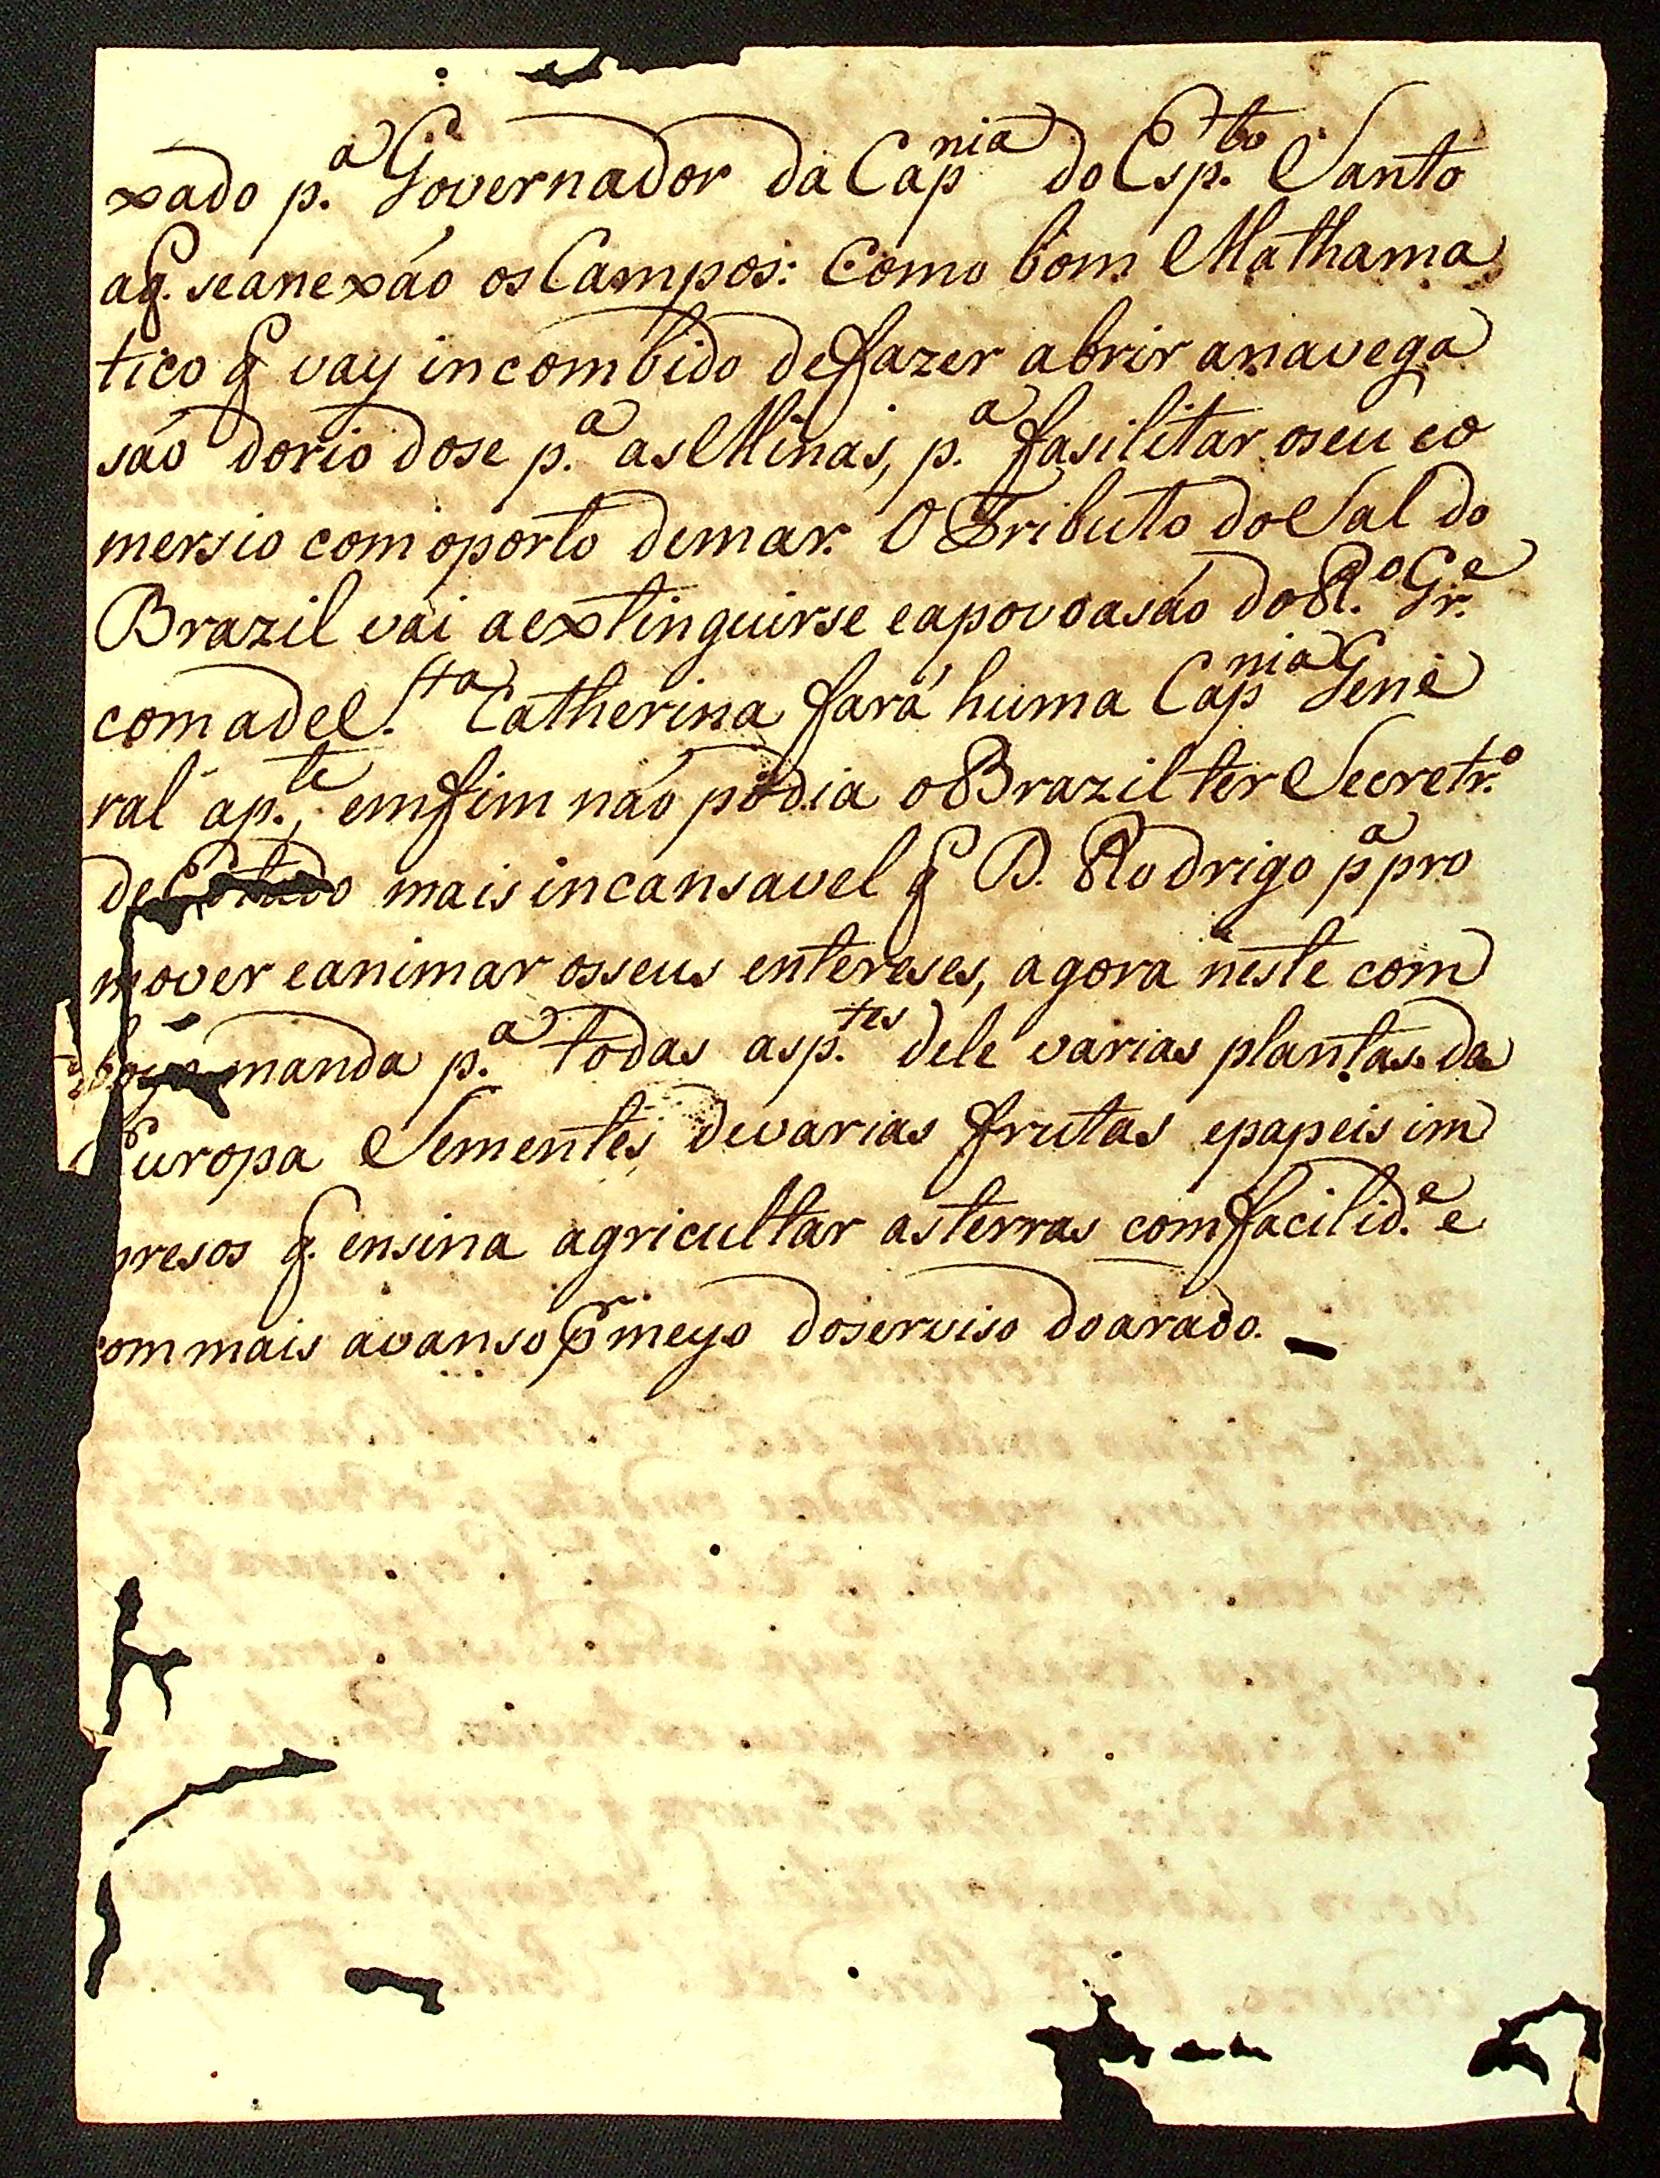 xado p.ª Governador da Capnia do Esp.to Santo
aq. se anexáo os Campos: Como bom Mathama
tico q vay incombido de fazer abrir a navega
sáo do rio dose p.ª as Minas, p.ª fasilitar o seu co
mersio com o porto de mar. O Tributo do Sal do
Brazil vai a extinguirse e a povoasáo do R.º Gr.e
com a de S.ta Catherina fará huma Capnia Gene
ral ap.te, emfim náo podia o Brazil ter Secretr.º
de Estado mais incansavel q D. Rodrigo pª pro
mover e animar os seus entereses, agora neste com
boyo manda p.ª todas as p.tes dele varias plantas da
Europa Sementes de varias frutas e papeis im
presos q. ensina agricultar as terras com facilid.e e
com mais avanso pr meyo do serviso do arado. —